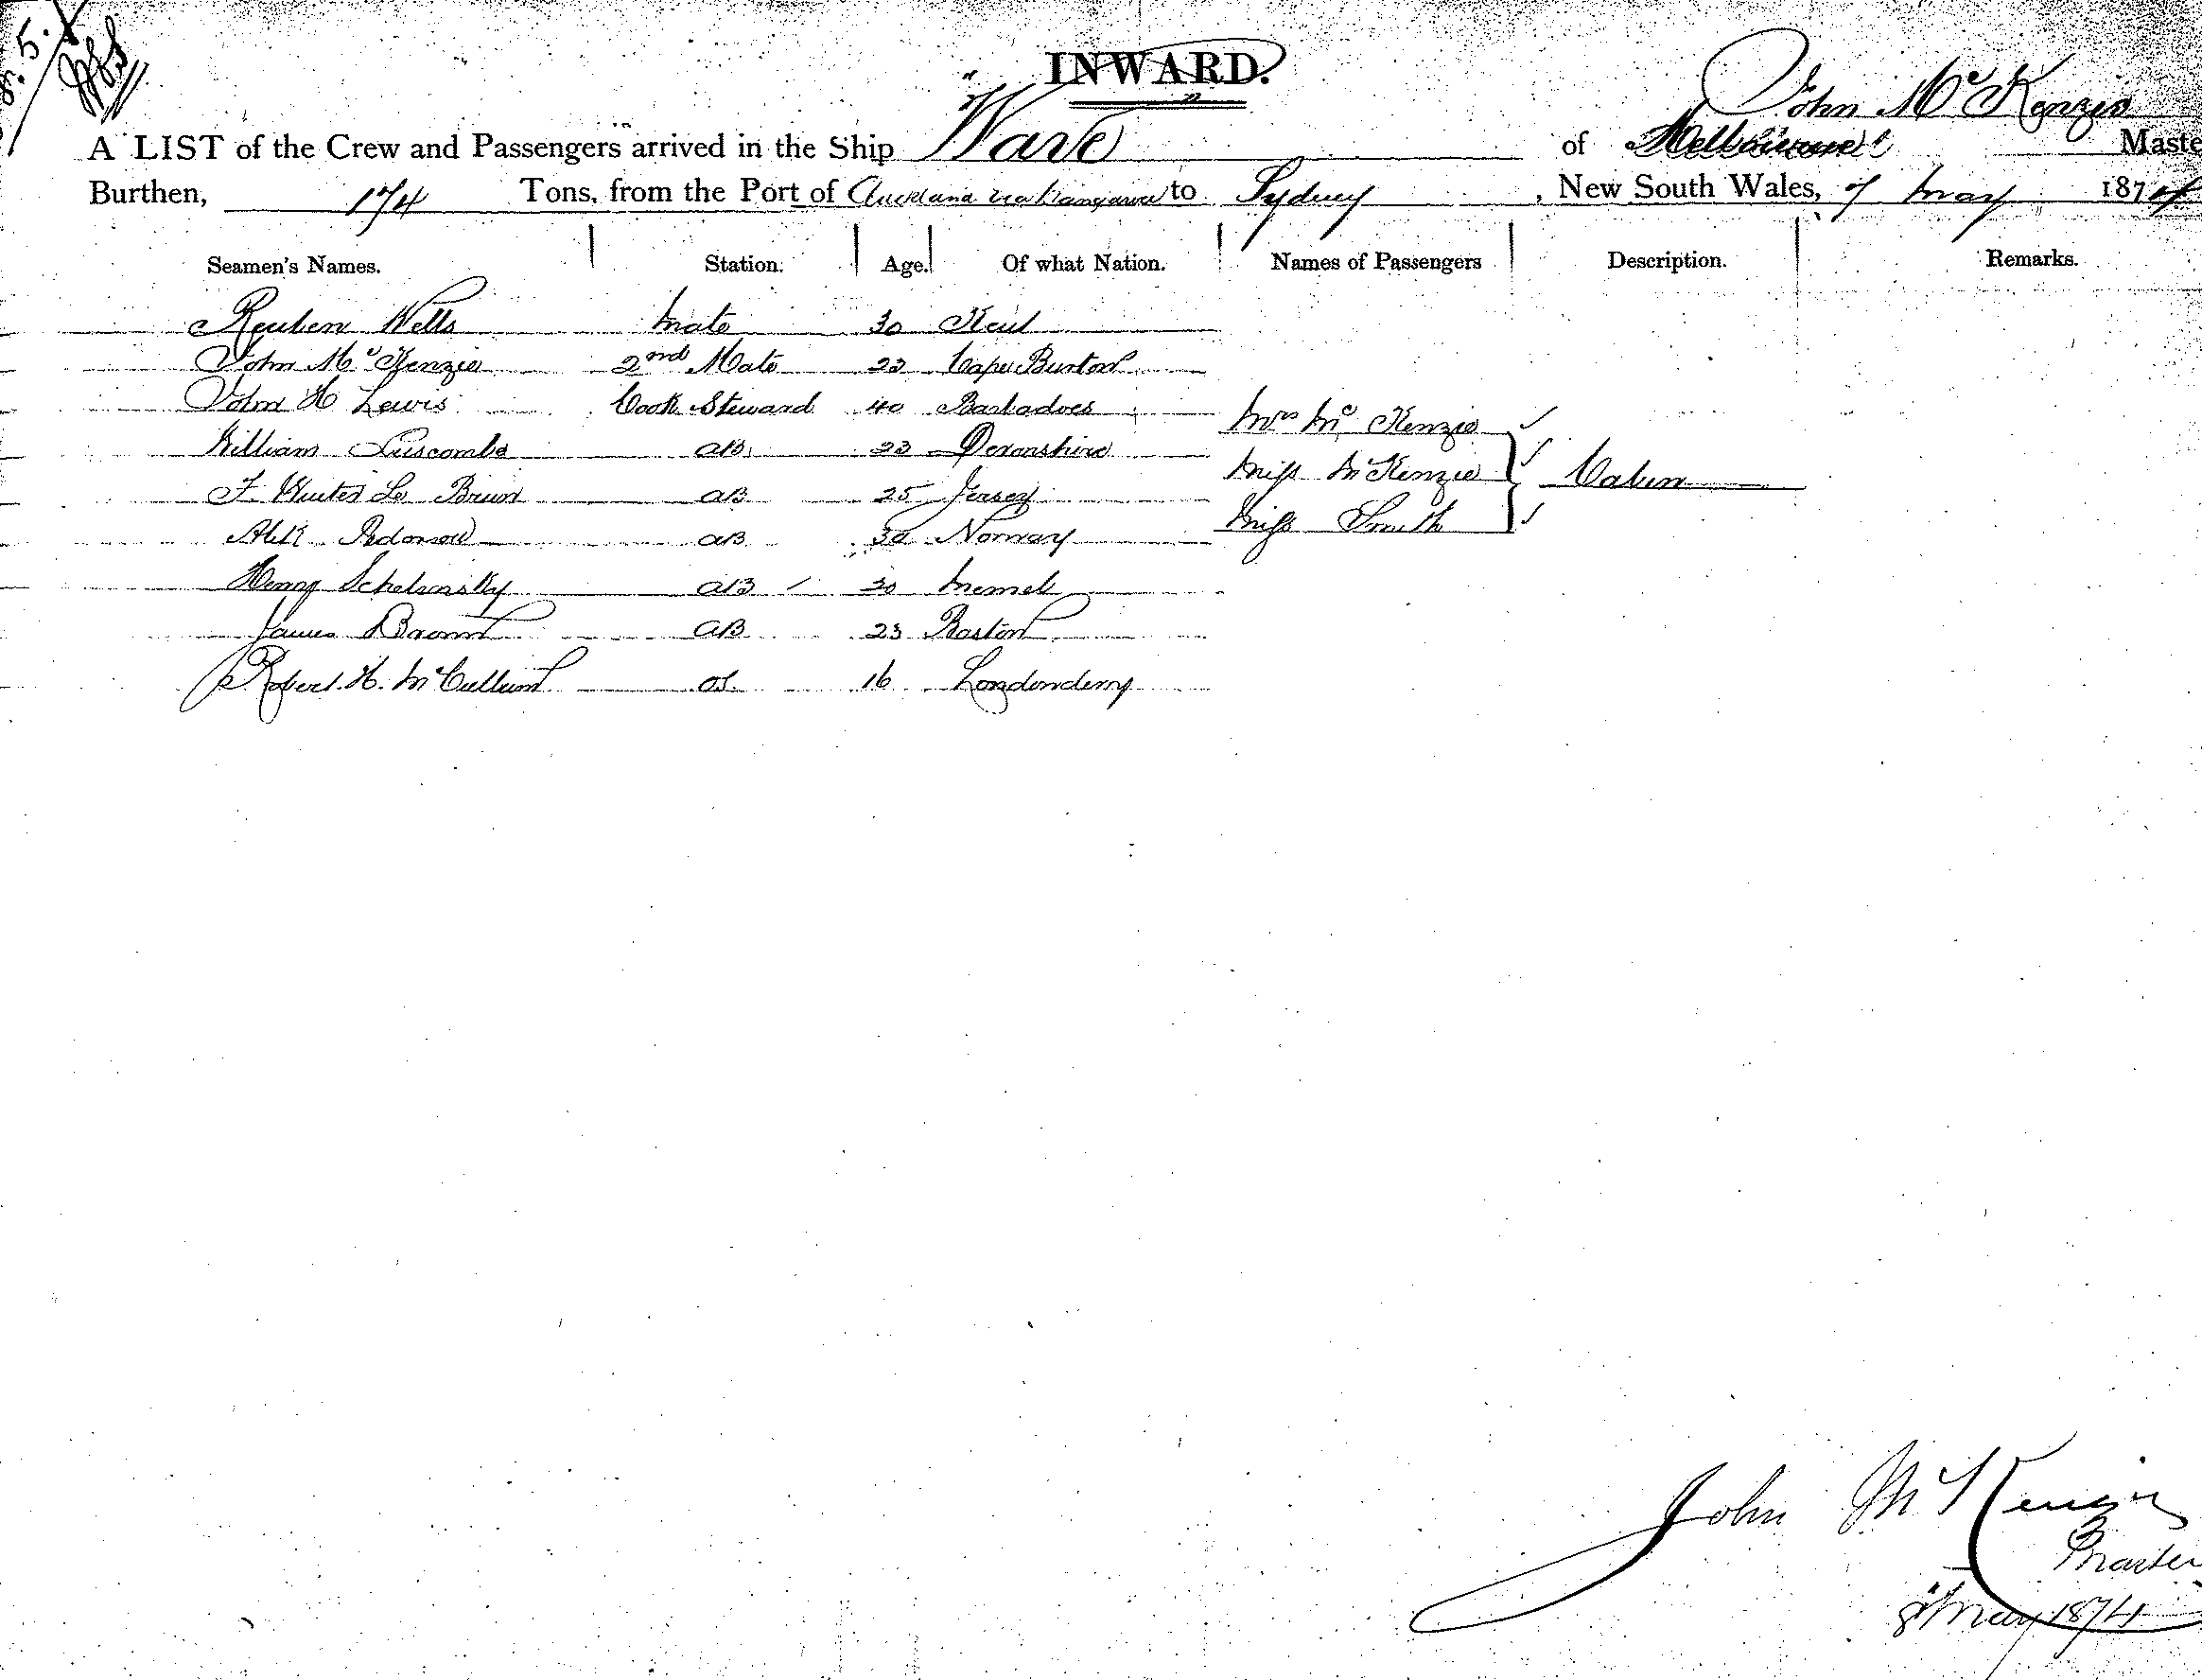 INWARD.
John McKenzie
A LIST of the Crew and Passengers arrived in the Ship "Wave" of Melbourne Maste
Burthen, 174 Tons, from the Port of Auckland via to Sydney, New South Wales, 7 May 1874
Seamen's Names. Station. Age. Of what Nation. Names of Passengers Description. Remarks.
Reuben Wells Mate 30 Kent
John McKenzie 2nd Mate 22 Cape Burton
John H Lewis Cook Steward 40 Barbadoes Mrs McKenzie
William Luscombe AB 23 Devonshire Miss McKenzie Cabin
F Le Brun AB 25 Jersey Miss Smith
AB 30 Norway
Henry AB 30 Memel
James Brown AB 23 Boston
Robert H. McCullum OS. 16 Londonderry
John McKenzie
Master
8 May 1874